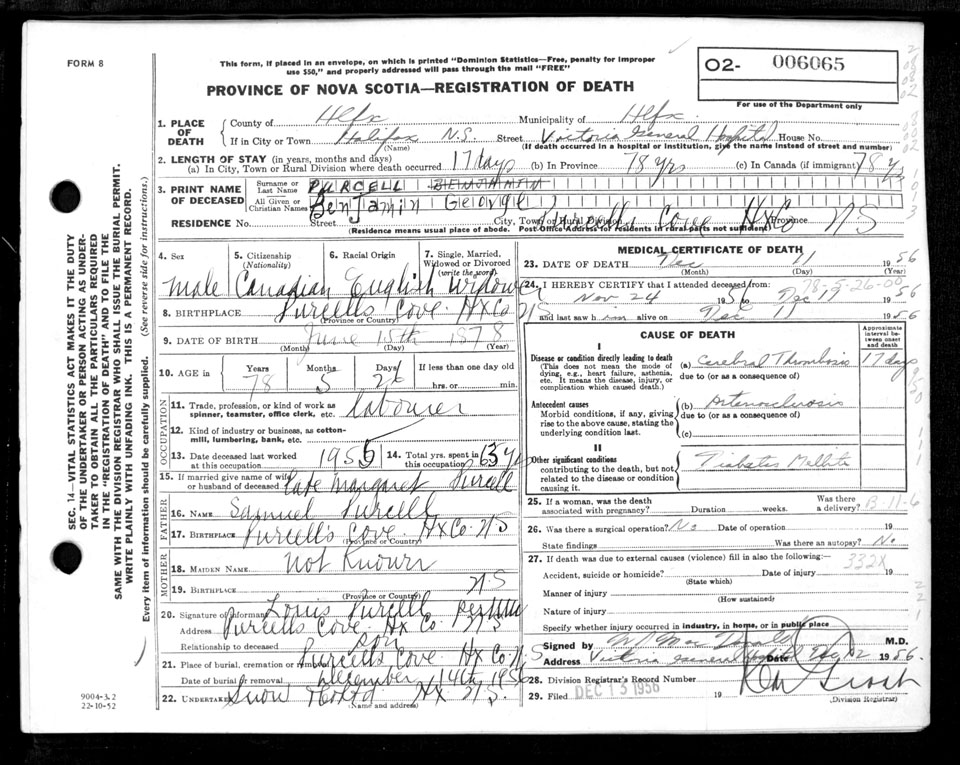 FORM 8
This form, if placed in an envelope, on which is printed "Dominion Statistics—Free, penalty for improper
use $50," and properly addressed will pass through the mail "FREE"
PROVINCE OF NOVA SCOTIA—REGISTRATION OF DEATH
O2- 006065
For use of the Department only
1. PLACE OF DEATH
County of Hlfx Municipality of Hlfx
If in City or Town Halifax N.S. Street Victoria General Hospital House No.
(Name) (If death occurred in a hospital or institution, give the name instead of street and number)
2. LENGTH OF STAY (in years, months and days)
(a) In City, Town or Rural Division where death occurred 17 days (b) In Province 78 yrs (c) In Canada (if immigrant) 78 yrs
3. PRINT NAME OF DECEASED
Surname or Last Name PURCELL BENJAMIN
All Given or Christian Names Benjamin George
RESIDENCE No. Street City, Town or Rural Division Purcells Cove HxCo Province NS
(Residence means usual place of abode. Post Office Address for residents in rural parts not sufficient)
4. Sex
5. Citizenship (Nationality)
6. Racial Origin
7. Single, Married, Widowed or Divorced (write the word)
Male Canadian English Widower
8. BIRTHPLACE Purcells Cove HxCo NS
(Province or Country)
9. DATE OF BIRTH June 15th 1878
(Month) (Day) (Year)
10. AGE in Years Months Days If less than one day old
78 5 26 hrs. or min.
OCCUPATION
11. Trade, profession, or kind of work as spinner, teamster, office clerk, etc. labourer
12. Kind of industry or business, as cotton-mill, lumbering, bank, etc.
13. Date deceased last worked at this occupation 1955 14. Total yrs. spent in this occupation 63 yrs
15. If married give name of wife or husband of deceased late Margaret Purcell
FATHER
16. NAME Samuel Purcell
17. BIRTHPLACE Purcell's Cove HxCo NS
(Province or Country)
MOTHER
18. MAIDEN NAME Not Known
19. BIRTHPLACE NS
(Province or Country)
20. Signature of informant Louis Purcell per
Address Purcells Cove Hx Co NS
Relationship to deceased son
21. Place of burial, cremation or removal Purcells Cove Hx Co N.S
Date of burial or removal December 14th 1956
22. UNDERTAKER Snow Hx NS
(Name and address)
MEDICAL CERTIFICATE OF DEATH
23. DATE OF DEATH Dec 11 1956
(Month) (Day) (Year)
24. I HEREBY CERTIFY that I attended deceased from:
78-5-26-00
Nov 24 1956 to Dec 11 1956
and last saw him alive on Dec 11 1956
CAUSE OF DEATH
Approximate interval between onset and death
I
Disease or condition directly leading to death
(This does not mean the mode of dying, e.g., heart failure, asthenia, etc. It means the disease, injury, or complication which caused death.)
(a) Cerebral Thrombosis 17 days
due to (or as a consequence of)
Antecedent causes
Morbid conditions, if any, giving rise to the above cause, stating the underlying condition last.
(b) Arteriosclerosis
due to (or as a consequence of)
(c)
II
Other significant conditions contributing to the death, but not related to the disease or condition causing it.
Diabetes Mellitus
25. If a woman, was the death associated with pregnancy? Duration weeks. Was there a delivery? B-11-6
26. Was there a surgical operation? No Date of operation 19
State findings Was there an autopsy? No
27. If death was due to external causes (violence) fill in also the following:—
332X
Accident, suicide or homicide? Date of injury 19
(State which)
Manner of injury
(How sustained)
Nature of injury
Specify whether injury occurred in industry, in home, or in public place
Signed by M.D.
Address Victoria General Hospital Date Dec 12 1956.
28. Division Registrar's Record Number
29. Filed DEC 13 1956 19
(Division Registrar)
SEC. 14—VITAL STATISTICS ACT MAKES IT THE DUTY OF THE UNDERTAKER OR PERSON ACTING AS UNDERTAKER TO OBTAIN ALL THE PARTICULARS REQUIRED IN THE "REGISTRATION OF DEATH" AND TO FILE THE SAME WITH THE DIVISION REGISTRAR WHO SHALL ISSUE THE BURIAL PERMIT.
WRITE PLAINLY WITH UNFADING INK. THIS IS A PERMANENT RECORD.
Every item of information should be carefully supplied. (See reverse side for instructions.)
9004-3.2
22-10-52